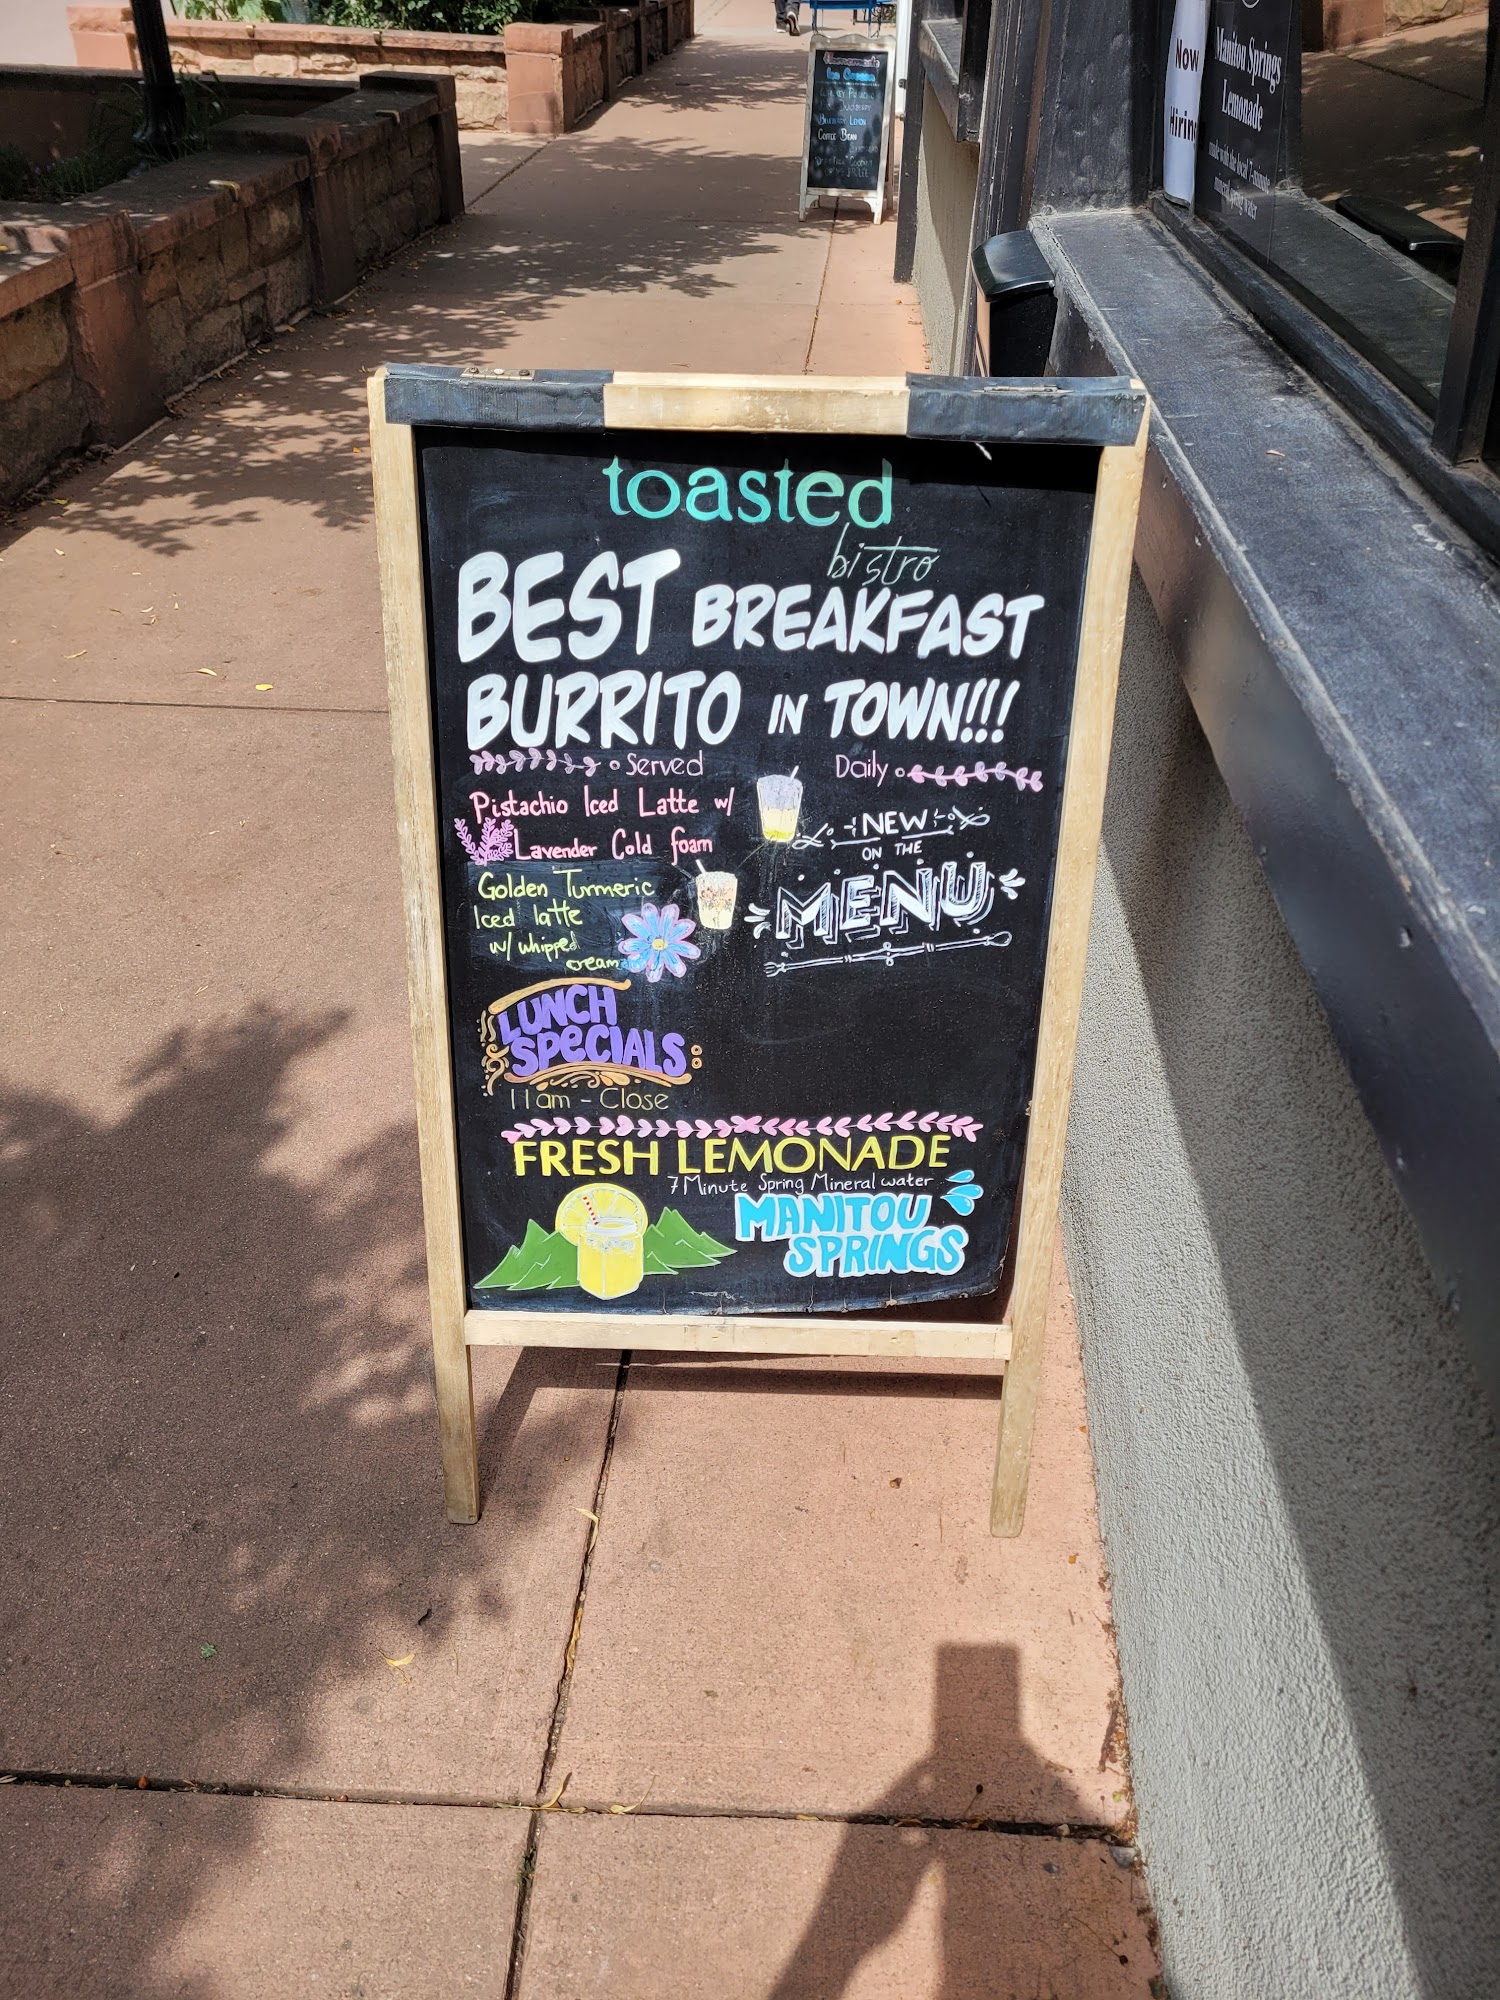 Homemade
Ice Cream
Blueberry Lemon
Coffee Bean
Now
Hiring
Manitou Springs
Lemonade
made with the local 7-minute
mineral spring water
toasted
bistro
BEST BREAKFAST
BURRITO IN TOWN!!!
Served Daily
Pistachio Iced Latte w/
Lavender Cold foam
Golden Turmeric
Iced latte
w/ whipped
cream
NEW
ON THE
MENU
LUNCH
SPECIALS
11am - Close
FRESH LEMONADE
7 Minute Spring Mineral water
MANITOU
SPRINGS